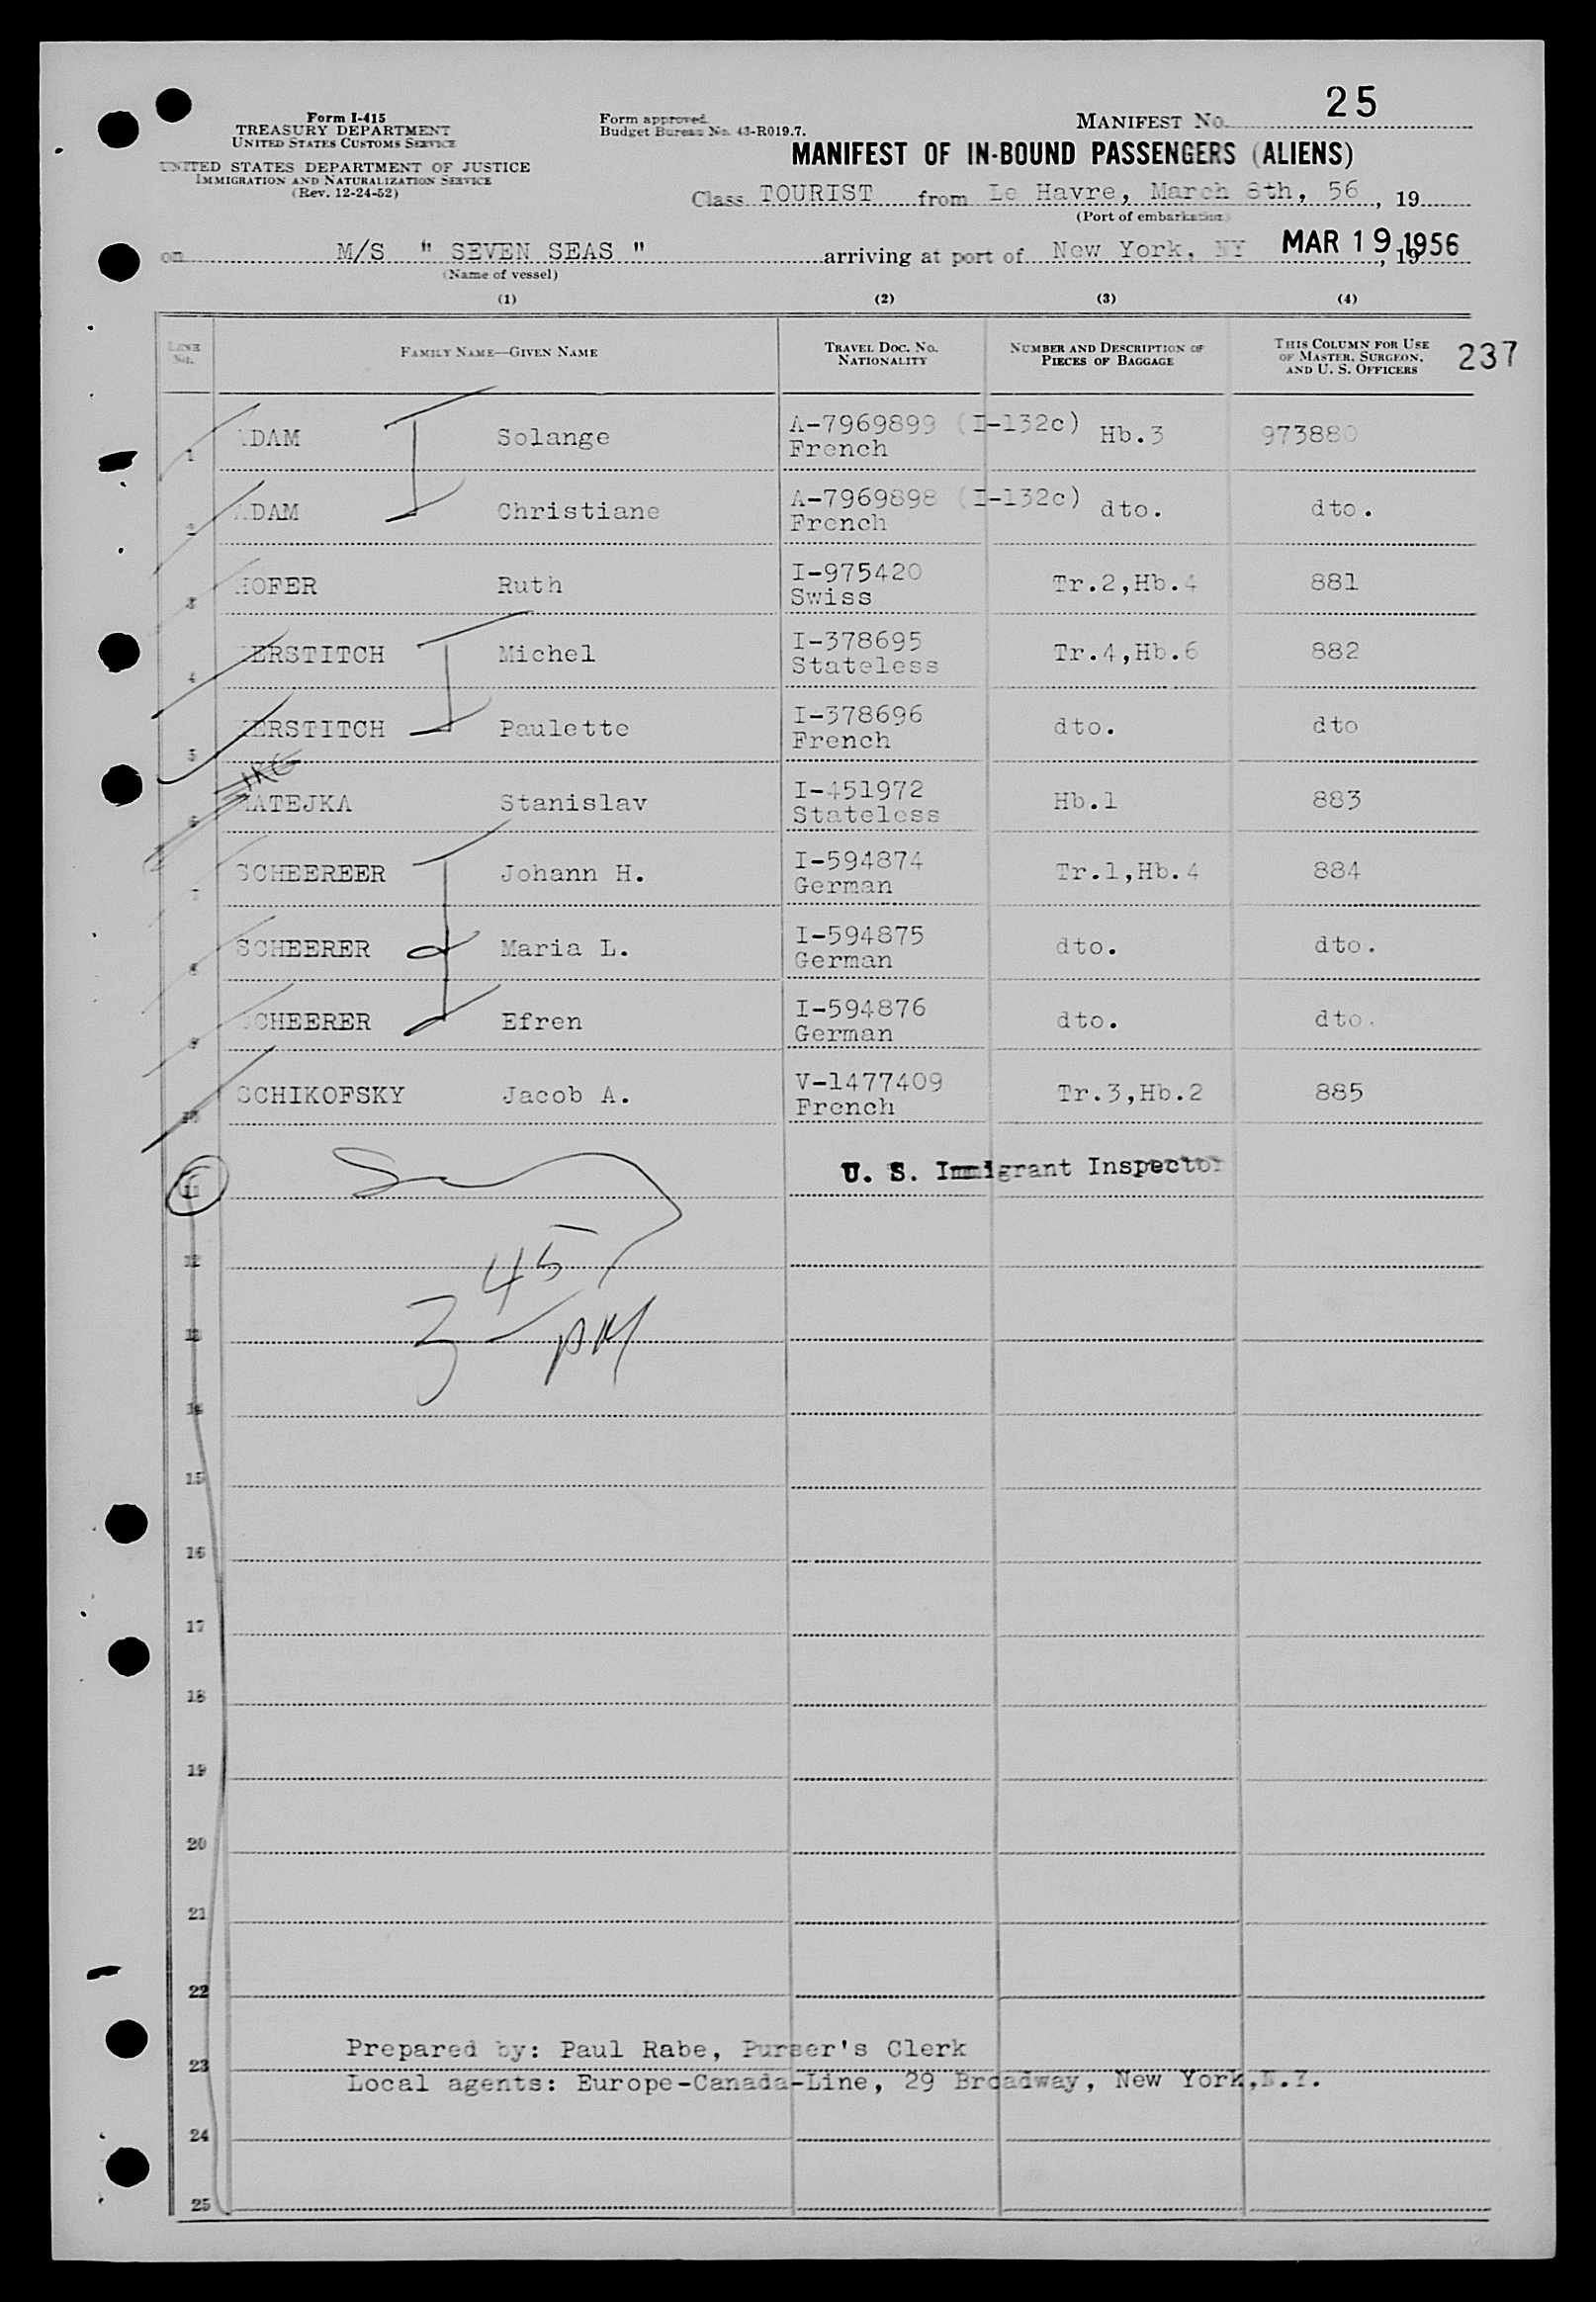 25
Form I-415
TREASURY DEPARTMENT
UNITED STATES CUSTOMS SERVICE
UNITED STATES DEPARTMENT OF JUSTICE
IMMIGRATION AND NATURALIZATION SERVICE
(Rev. 12-24-52)
Form approved.
Budget Bureau No. 43-R019.7.
MANIFEST No.
MANIFEST OF IN-BOUND PASSENGERS (ALIENS)
Class TOURIST from Le Havre, March 8th, 56, 19
(Port of embarkation)
on M/S " SEVEN SEAS " arriving at port of New York, NY MAR 19 1956, 19
(Name of vessel)
(1) (2) (3) (4)
LINE No. FAMILY NAME—GIVEN NAME TRAVEL DOC. No. NATIONALITY NUMBER AND DESCRIPTION OF PIECES OF BAGGAGE THIS COLUMN FOR USE OF MASTER, SURGEON, AND U. S. OFFICERS 237
1 ADAM Solange A-7969899 (I-132c) French Hb.3 973880
2 ADAM Christiane A-7969898 (I-132c) French dto. dto.
3 HOFER Ruth I-975420 Swiss Tr.2,Hb.4 881
4 KERSTITCH Michel I-378695 Stateless Tr.4,Hb.6 882
5 KERSTITCH Paulette I-378696 French dto. dto
6 MATEJKA Stanislav I-451972 Stateless Hb.1 883
7 SCHEEREER Johann H. I-594874 German Tr.1,Hb.4 884
8 SCHEERER Maria L. I-594875 German dto. dto.
9 SCHEERER Efren I-594876 German dto. dto.
10 SCHIKOFSKY Jacob A. V-1477409 French Tr.3,Hb.2 885
11 U. S. Immigrant Inspector
12
3 45 PM
13
14
15
16
17
18
19
20
21
22
Prepared by: Paul Rabe, Purser's Clerk
23
Local agents: Europe-Canada-Line, 29 Broadway, New York,N.Y.
24
25